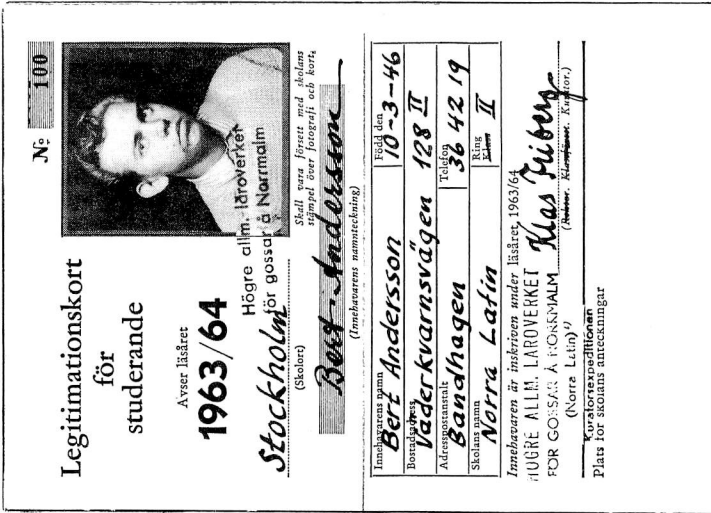 Legitimationskort
för
studerande
Avser läsåret
1963/64
Stockholm
(Skolort)
№ 100
Högre allm. läroverket
för gossar å Norrmalm
Skall vara försett med skolans
stämpel över fotografi och kort.
Bert Andersson
(Innehavarens namnteckning)
Innehavarens namn
Bert Andersson
Född den
10-3-46
Bostadsadress
Väderkvarnsvägen 128 II
Adresspostanstalt
Bandhagen
Telefon
36 42 19
Skolans namn
Norra Latin
Ring
Klass
II
Innehavaren är inskriven under läsåret, 1963/64
HÖGRE ALLM. LÄROVERKET
FÖR GOSSAR Å NORRMALM
(Norra Latin)
Klas Friberg
(Rektor. Klassförest. Kurator.)
Kuratorsexpeditionen
Plats för skolans anteckningar